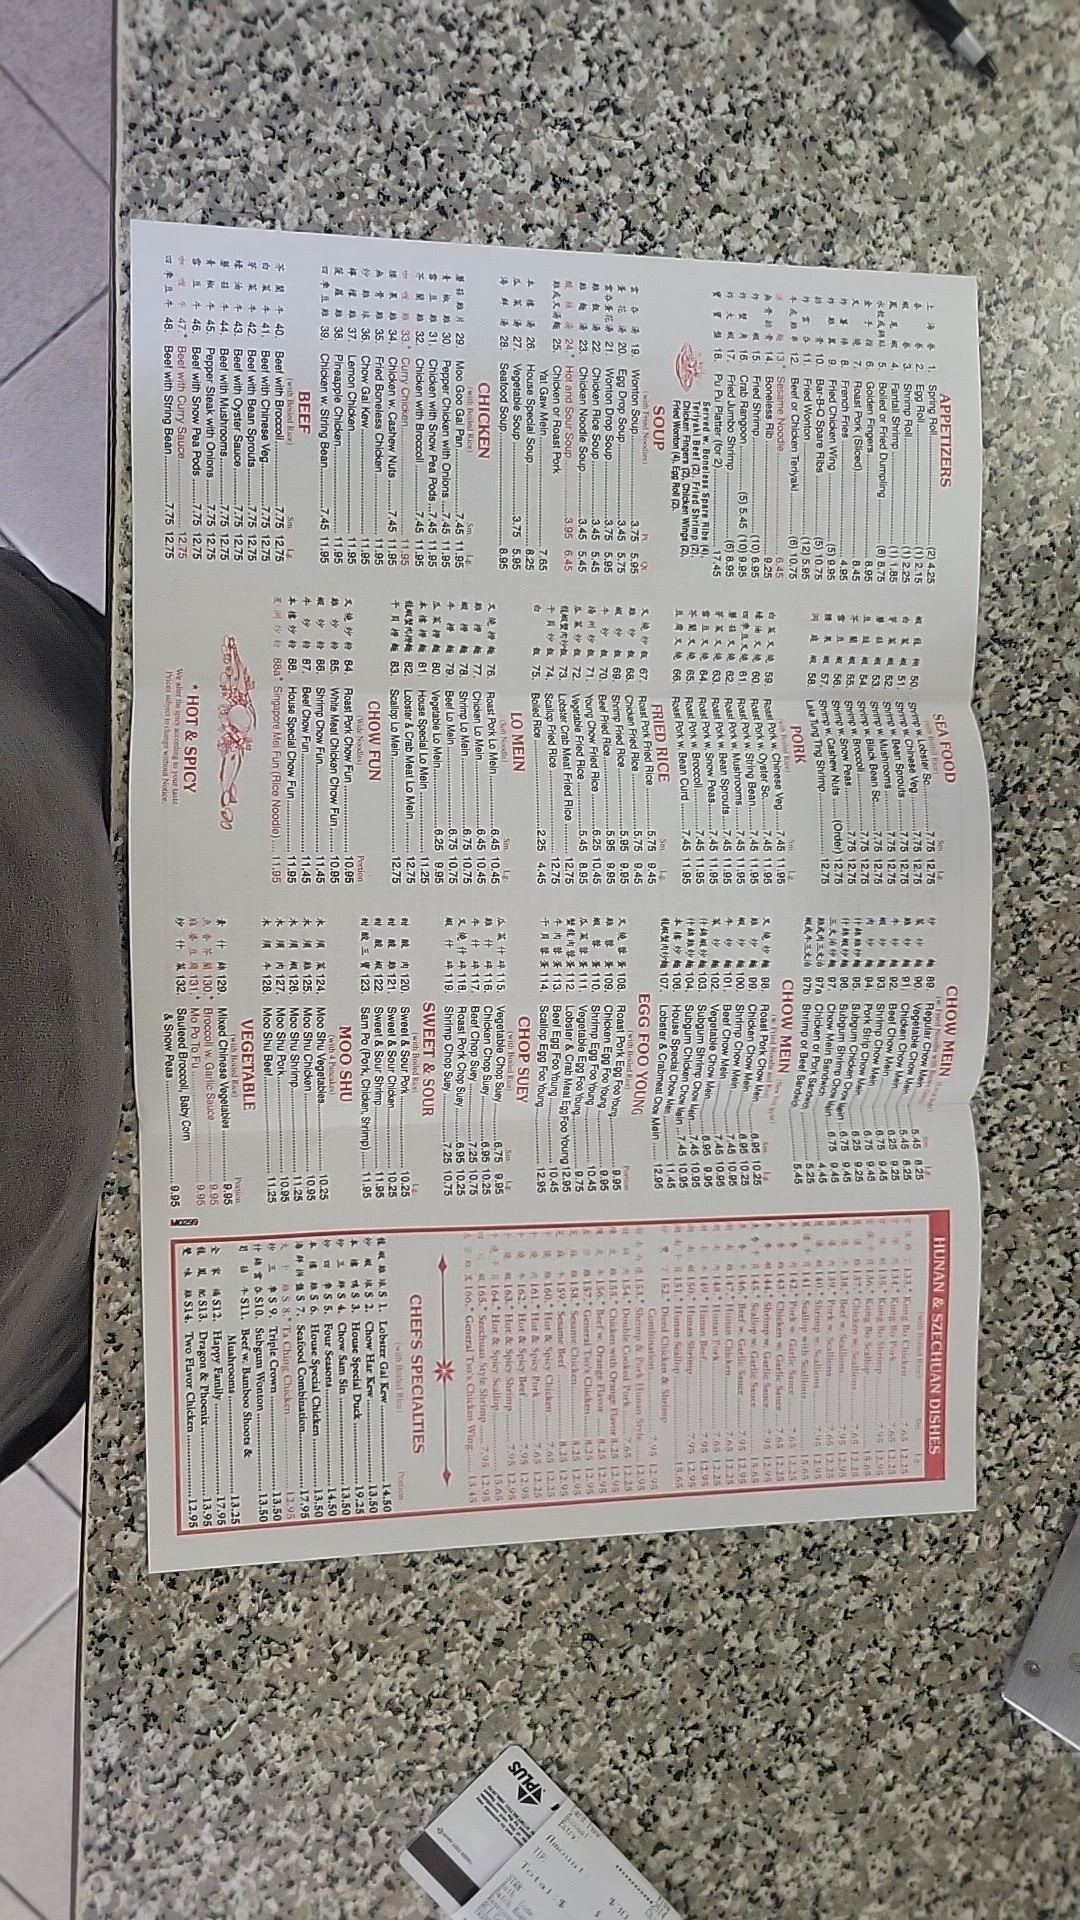 APPETIZERS
上海卷 1. Spring Roll (2) 4.25
春卷 2. Egg Roll (1) 2.15
蝦卷 3. Shrimp Roll (1) 2.25
鳳尾蝦 4. Fantail Shrimp (1) 1.85
5. Boiled or Fried Dumpling (8) 8.75
6. Golden Fingers 8.95
7. Roast Pork (Sliced) 8.45
炸薯條 8. French Fries 4.95
炸雞翼 9. Fried Chicken Wing (5) 9.95
10. Bar-B-Q Spare Ribs (5) 10.75
炸雲吞 11. Fried Wonton (12) 5.95
12. Beef or Chicken Teriyaki (6) 10.75
13.* Sesame Noodle 6.45
14. Boneless Rib 9.25
炸蟹 16. Crab Rangoon (5) 5.45 (10) 9.95
炸蝦 Fried Shrimp (10) 6.95
炸大蝦 17. Fried Jumbo Shrimp (6) 8.95
寶寶盤 18. Pu Pu Platter (for 2) 17.45
Served w. Boneless Spare Ribs (4),
Teriyaki Beef (2), Fried Shrimp (2),
Chicken Fingers (2), Chicken Wings (2),
Fried Wonton (4), Egg Roll (2).
SOUP
(with Fried Noodles) Pt. Qt.
雲吞湯 19. Wonton Soup 3.75 5.95
蛋花湯 20. Egg Drop Soup 3.45 5.75
雲吞蛋花湯 21. Wonton Drop Soup 3.75 5.95
雞飯湯 22. Chicken Rice Soup 3.45 5.45
雞麵湯 23. Chicken Noodle Soup 3.45 5.45
酸辣湯 24.* Hot and Sour Soup 3.95 6.45
25. Chicken or Roast Pork
Yat Gaw Mein 7.65
本樓湯 26. House Special Soup 8.25
瓜菜湯 27. Vegetable Soup 3.75 5.95
海鮮湯 28. Seafood Soup 8.95
CHICKEN
(with Boiled Rice) Sm. Lg.
蘑菇雞片 29. Moo Goo Gai Pan 7.45 11.95
青椒雞 30. Pepper Chicken with Onions 7.45 11.95
雪豆雞 31. Chicken with Snow Pea Pods 7.45 11.95
芥蘭雞 32. Chicken with Broccoli 7.45 11.95
咖喱雞 33.* Curry Chicken 11.95
腰果雞 34. Chicken w. Cashew Nuts 7.45 11.95
無骨雞 35. Fried Boneless Chicken 11.95
炒雞球 36. Chow Gai Kew 11.95
檸檬雞 37. Lemon Chicken 11.95
菠蘿雞 38. Pineapple Chicken 11.95
四季豆雞 39. Chicken w. String Bean 7.45 11.95
BEEF
(with Boiled Rice) Sm. Lg.
芥蘭牛 40. Beef with Broccoli 7.75 12.75
白菜牛 41. Beef with Chinese Veg 7.75 12.75
芽菜牛 42. Beef with Bean Sprouts 7.75 12.75
蠔油牛 43. Beef with Oyster Sauce 7.75 12.75
蘑菇牛 44. Beef with Mushrooms 7.75 12.75
青椒牛 45. Pepper Steak with Onions 7.75 12.75
雪豆牛 46. Beef with Snow Pea Pods 7.75 12.75
咖喱牛 47.* Beef with Curry Sauce 12.75
四季豆牛 48. Beef with String Bean 7.75 12.75
SEA FOOD
(with Boiled Rice) Sm. Lg.
蝦龍糊 50. Shrimp w. Lobster Sc. 7.75 12.75
白菜蝦 51. Shrimp w. Chinese Veg 7.75 12.75
芽菜蝦 52. Shrimp w. Bean Sprouts 7.75 12.75
蘑菇蝦 53. Shrimp w. Mushrooms 7.75 12.75
豆豉蝦 54. Shrimp w. Black Bean Sc. 7.75 12.75
芥蘭蝦 55. Shrimp w. Broccoli 7.75 12.75
雪豆蝦 56. Shrimp w. Snow Peas 7.75 12.75
腰果蝦 57. Shrimp w. Cashew Nuts (Order) 12.75
洞庭蝦 58. Lake Tung Ting Shrimp 12.75
PORK
(with Boiled Rice) Sm. Lg.
白菜叉燒 59. Roast Pork w. Chinese Veg 7.45 11.95
蠔油叉燒 60. Roast Pork w. Oyster Sc. 7.45 11.95
四季豆叉燒 61. Roast Pork w. String Bean 7.45 11.95
蘑菇叉燒 62. Roast Pork w. Mushrooms 7.45 11.95
芽菜叉燒 63. Roast Pork w. Bean Sprouts 7.45 11.95
雪豆叉燒 64. Roast Pork w. Snow Peas 7.45 11.95
芥蘭叉燒 65. Roast Pork w. Broccoli 7.45 11.95
豆腐叉燒 66. Roast Pork w. Bean Curd 7.45 11.95
FRIED RICE
Sm. Lg.
叉燒炒飯 67. Roast Pork Fried Rice 5.75 9.45
雞炒飯 68. Chicken Fried Rice 5.75 9.45
蝦炒飯 69. Shrimp Fried Rice 5.95 9.95
牛炒飯 70. Beef Fried Rice 5.95 9.95
揚州炒飯 71. Young Chow Fried Rice 6.25 10.45
瓜菜炒飯 72. Vegetable Fried Rice 5.45 8.95
龍蝦蟹肉炒飯 73. Lobster Crab Meat Fried Rice 12.75
干貝炒飯 74. Scallop Fried Rice 12.75
白飯 75. Boiled Rice 2.25 4.45
LO MEIN
(Soft Noodle) Sm. Lg.
叉燒撈麵 76. Roast Pork Lo Mein 6.45 10.45
雞撈麵 77. Chicken Lo Mein 6.45 10.45
蝦撈麵 78. Shrimp Lo Mein 6.75 10.75
牛撈麵 79. Beef Lo Mein 6.75 10.75
瓜菜撈麵 80. Vegetable Lo Mein 6.25 9.95
本樓撈麵 81. House Special Lo Mein 11.25
龍蝦蟹肉撈麵 82. Lobster & Crab Meat Lo Mein 12.75
干貝撈麵 83. Scallop Lo Mein 12.75
CHOW FUN
(Wide Noodles) Portion
叉燒炒粉 84. Roast Pork Chow Fun 10.95
雞炒粉 85. White Meat Chicken Chow Fun 10.95
蝦炒粉 86. Shrimp Chow Fun 11.45
牛炒粉 87. Beef Chow Fun 11.45
本樓炒粉 88. House Special Chow Fun 11.95
星洲炒粉 88a* Singapore Mei Fun (Rice Noodle) 11.95
* HOT & SPICY
We alter the spicy according to your taste.
Prices subject to change without Notice.
CHOW MEIN
Sm. Lg.
炒麵 89. Regular Chow Mein 5.45 8.25
菜炒麵 90. Vegetable Chow Mein 5.45 8.25
雞炒麵 91. Chicken Chow Mein 5.45 8.25
牛炒麵 92. Beef Chow Mein 6.25 9.25
蝦炒麵 93. Shrimp Chow Mein 6.75 9.45
94. Pork Strip Chow Mein 6.75 9.45
95. Subgum Chicken Chow Mein 6.25 9.25
96. Subgum Shrimp Chow Mein 6.75 9.45
97. Chow Mein Sandwich 4.45
97a Chicken or Pork Sandwich 5.25
97b Shrimp or Beef Sandwich 5.45
CHOW MEIN
Sm. Lg.
叉燒炒麵 98. Roast Pork Chow Mein 6.95 10.25
雞炒麵 99. Chicken Chow Mein 6.95 10.25
蝦炒麵 100. Shrimp Chow Mein 7.45 10.95
牛炒麵 101. Beef Chow Mein 7.45 10.95
102. Vegetable Chow Mein 6.95 9.95
103. Subgum Shrimp Chow Mein 7.45 10.95
104. Subgum Chicken Chow Mein 7.45 10.95
本樓炒麵 106. House Special Chow Mein 11.45
107. Lobster & Crabmeat Chow Mein 12.95
EGG FOO YOUNG
(with Boiled Rice) Portion
叉燒蓉蛋 108. Roast Pork Egg Foo Young 9.95
雞蓉蛋 109. Chicken Egg Foo Young 9.95
蝦蓉蛋 110. Shrimp Egg Foo Young 10.45
瓜菜蓉蛋 111. Vegetable Egg Foo Young 9.75
112. Lobster & Crab Meat Egg Foo Young 12.95
牛肉蓉蛋 113. Beef Egg Foo Young 10.45
干貝蓉蛋 114. Scallop Egg Foo Young 12.95
CHOP SUEY
(with Boiled Rice) Sm. Lg.
瓜菜什碎 115. Vegetable Chop Suey 6.75 9.95
雞什碎 116. Chicken Chop Suey 6.95 10.25
牛什碎 117. Beef Chop Suey 7.25 10.75
叉燒什碎 118. Roast Pork Chop Suey 6.95 10.25
蝦什碎 119. Shrimp Chop Suey 7.25 10.75
SWEET & SOUR
(with Boiled Rice)
甜酸肉 120. Sweet & Sour Pork 10.25
甜酸雞 121. Sweet & Sour Chicken 10.25
甜酸蝦 122. Sweet & Sour Shrimp 10.95
甜酸三寶 123. Sam Po (Pork, Chicken, Shrimp) 11.95
MOO SHU
(with 4 Pancakes)
木須菜 124. Moo Shu Vegetables 10.25
木須雞 125. Moo Shu Chicken 10.95
木須蝦 126. Moo Shu Shrimp 11.25
木須肉 127. Moo Shu Pork 10.95
木須牛 128. Moo Shu Beef 11.25
VEGETABLE
(with Boiled Rice) Portion
素什錦 129. Mixed Chinese Vegetables 9.95
魚香芥蘭 130.* Broccoli w. Garlic Sauce 9.95
麻婆豆腐 131.* Mo Po Tofu 9.95
炒什菜 132. Sauteed Broccoli, Baby Corn
& Snow Peas 9.95
M0299
HUNAN & SZECHUAN DISHES
(with Boiled Rice) Sm. Lg.
133.* Kung Bo Chicken 7.65 12.25
134.* Kung Bo Pork 7.65 12.25
135.* Kung Bo Shrimp 7.95 12.95
136.* Kung Bo Scallop 15.65
137.* Chicken w. Scallions 7.65 12.25
138.* Beef w. Scallions 7.95 12.95
139.* Pork w. Scallions 7.65 12.25
140.* Shrimp w. Scallions 7.95 12.95
141.* Scallop with Scallions 15.65
142.* Pork w. Garlic Sauce 7.65 12.25
143.* Chicken w. Garlic Sauce 7.65 12.25
144.* Shrimp w. Garlic Sauce 7.95 12.95
145.* Beef w. Garlic Sauce 7.95 12.95
146.* Scallop w. Garlic Sauce 15.65
147.* Hunan Chicken 7.65 12.25
148.* Hunan Pork 7.65 12.25
149.* Hunan Beef 7.95 12.95
150.* Hunan Shrimp 7.95 12.95
151.* Hunan Scallop 15.65
152.* Diced Chicken & Shrimp
Combination 7.95 12.95
153.* Shrimp & Pork Hunan Style 12.95
154.* Double Cooked Pork 7.65 12.25
155.* Chicken with Orange Flavor 8.25 12.95
156.* Beef w. Orange Flavor 8.25 12.95
157.* General Tso's Chicken 8.25 12.95
158. Sesame Chicken 8.25 12.95
159. Sesame Beef 8.25 12.95
160.* Hot & Spicy Chicken 7.65 12.25
161.* Hot & Spicy Pork 7.65 12.25
162.* Hot & Spicy Beef 7.95 12.95
163.* Hot & Spicy Shrimp 7.95 12.95
164.* Hot & Spicy Scallop 15.65
165.* Szechuan Style Shrimp 7.95 12.95
166.* General Tso's Chicken Wing 13.45
CHEF'S SPECIALTIES
(with Boiled Rice) Portion
龍蝦雞球 S 1. Lobster Gai Kew 14.50
炒蝦球 S 2. Chow Har Kew 13.50
本樓鴨 S 3. House Special Duck 19.25
炒三鮮 S 4. Chow San Sin 13.50
炒四季 S 5. Four Seasons 14.50
本樓雞 S 6. House Special Chicken 13.50
海鮮拼盤 S 7. Seafood Combination 17.95
大干雞 S 8.* Ta Ching Chicken 12.95
炒三拿 S 9. Triple Crown 13.50
什錦雲吞 S10. Subgum Wonton 13.50
S11. Beef w. Bamboo Shoots &
Mushrooms 13.25
全家福 S12. Happy Family 17.95
龍鳳配 S13. Dragon & Phoenix 13.95
雙味雞 S14. Two Flavor Chicken 12.95
PLUS
Amount:
TIP:
Total: $